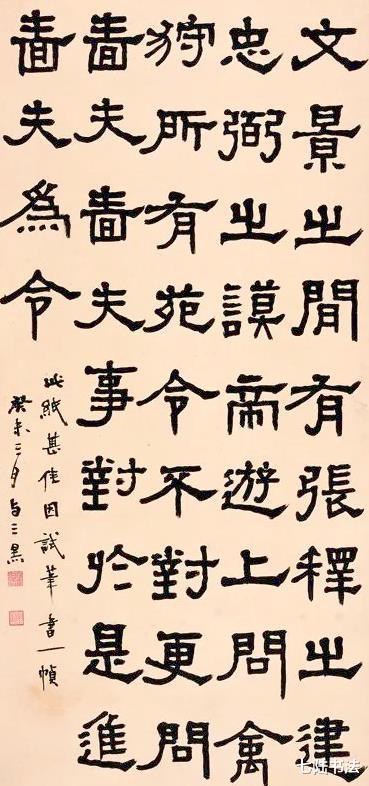 文景之間有張釋之建
忠弼之謨帝遊上問禽
狩所有苑令不對更問
嗇夫嗇夫事對於是進
嗇夫爲令
此紙甚佳因試筆書一幀
癸未三月
七陆书法